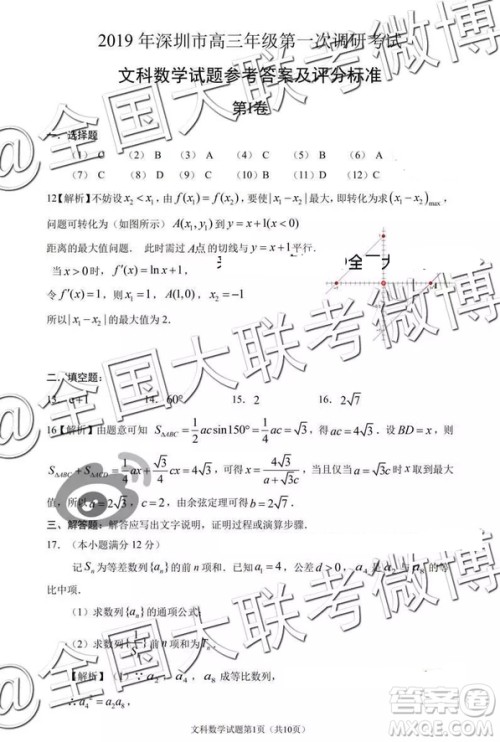 2019 年深圳市高三年级第一次调研考试
文科数学试题参考答案及评分标准
第I卷
一、选择题
(1) C (2) B (3) A (4) C (5) C (6) A
(7) C (8) D (9) B (10) D (11) A (12) C
12【解析】不妨设 x₂ < x₁，由 f(x₁) = f(x₂)，要使|x₁ − x₂|最大，即转化为求(x₁ − x₂)max，
问题可转化为（如图所示） A(x₁, y₁) 到 y = x+1(x<0)
距离的最大值问题. 此时需过 A点的切线与 y = x+1平行.
当 x > 0时，f′(x) = ln x + 1，
令 f′(x) = 1，则 x₁ = 1，A(1,0)，x₂ = −1
所以|x₁ − x₂|的最大值为 2.
二、填空题:
13. 14. 60° 15. 2 16. 2√7
16【解析】由题意可知 S△ABC = 1/2 ac sin150° = 1/4 ac = √3，得 ac = 4√3. 设 BD = x，则
S△ABC + S△ACD = 1/4 ax + √3/4 cx = 4√3，可得 x = 4√3/(a + √3c)，当且仅当 a = √3c 时 x 取到最大
值，所以 a = 2√3，c = 2，由余弦定理可得 b = 2√7.
三、解答题: 解答应写出文字说明，证明过程或演算步骤.
17.（本小题满分 12 分）
记 Sₙ 为等差数列{aₙ}的前 n 项和. 已知 a₁ = 4，公差 d > 0，a₄ 是 a₂ 与 a₈ 的等
比中项.
（1）求数列{aₙ}的通项公式；
（2）求数列 的前 n 项和为 Tₙ.
【解析】（1）∵ a₂，a₄，a₈ 成等比数列，
∴ a₄² = a₂a₈，
文科数学试题第1页（共10页）
@全国大联考微博
@全国大联考微博